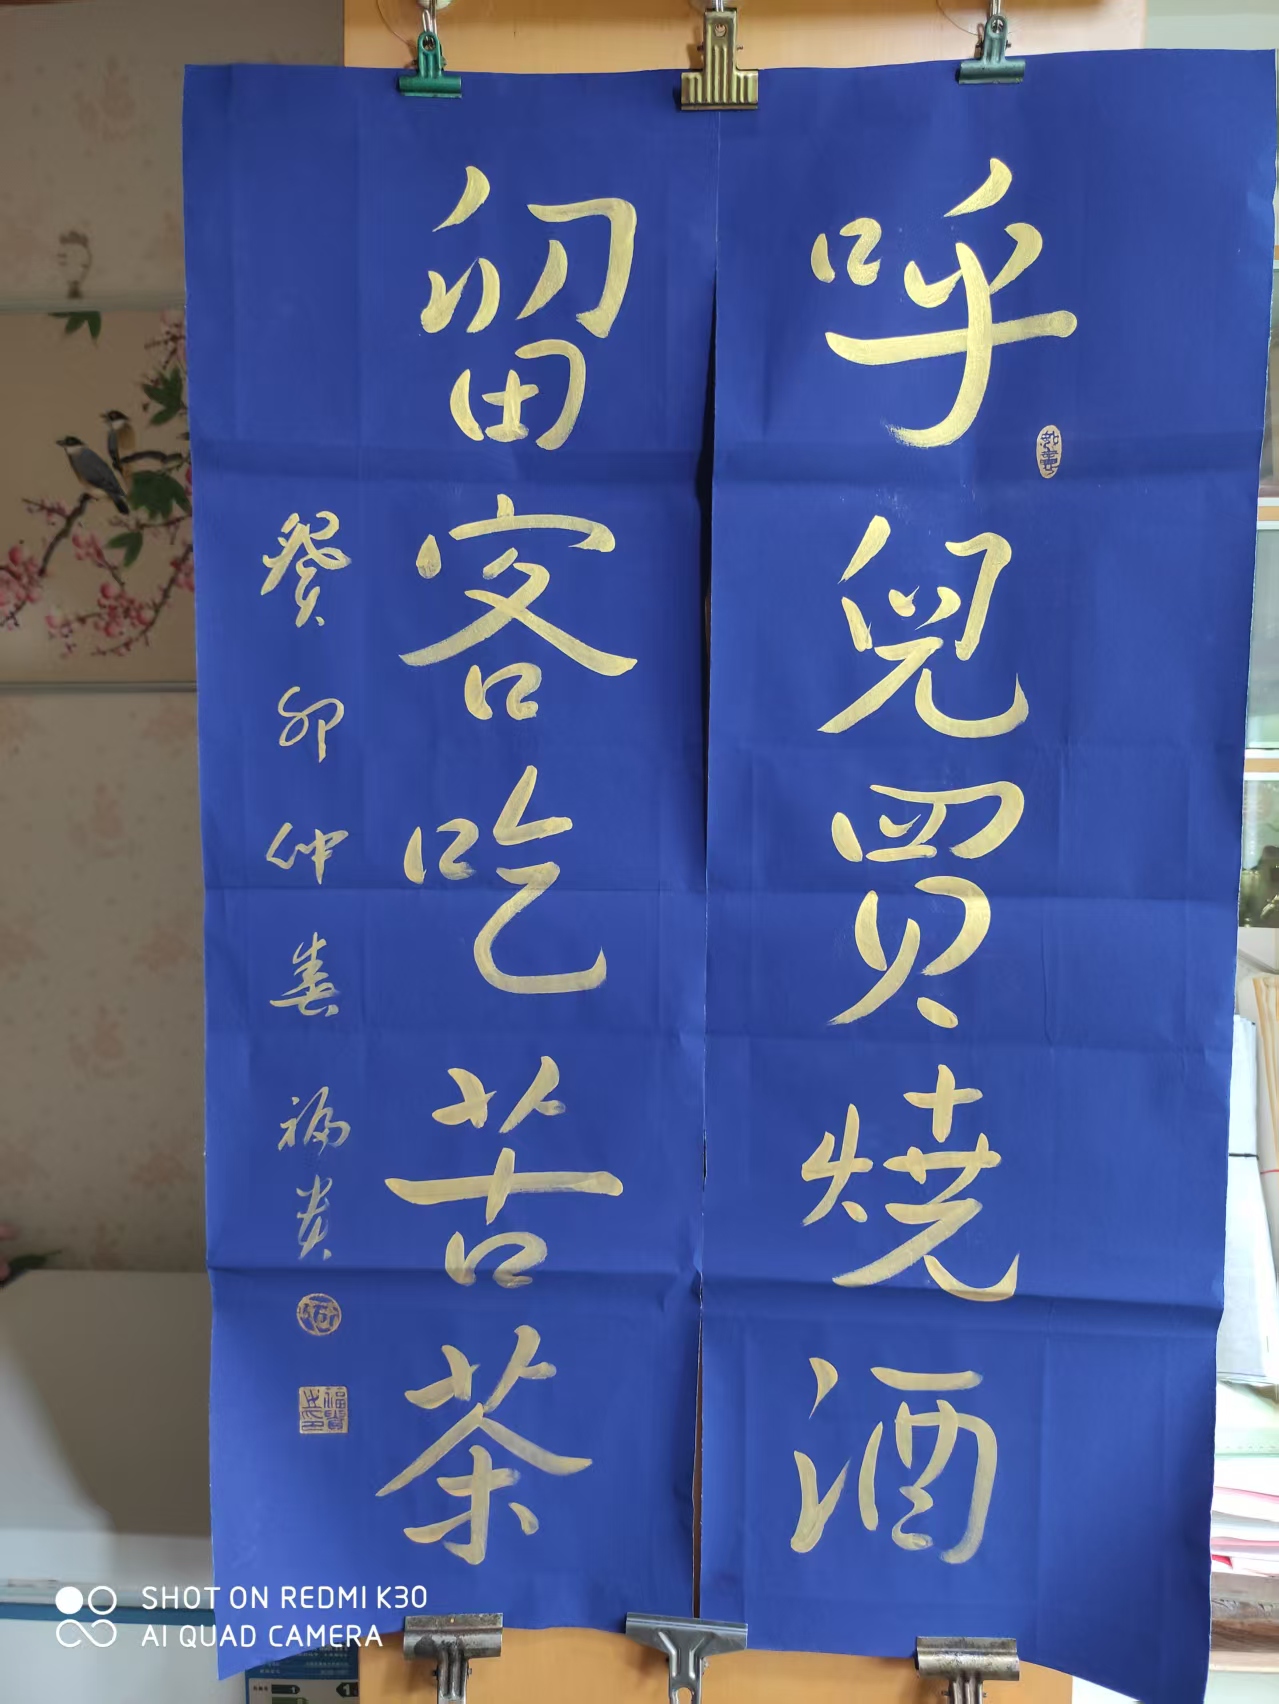 呼兒買燒酒
留客吃苦茶
癸卯仲春 福贵
福貴之印
SHOT ON REDMI K30
AI QUAD CAMERA